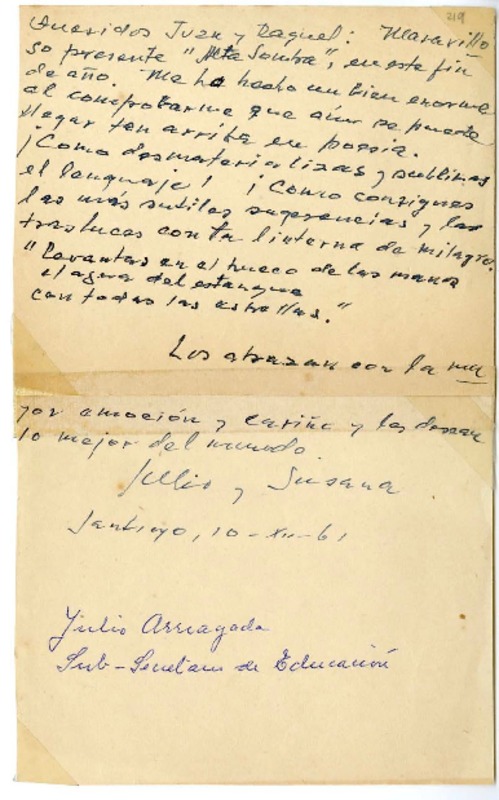 219
Queridos Juan y Raquel: Maravillo
so presente "Alta Sombra", en este fin
de año. Me ha hecho un bien enorme
al comprobarme que aún se puede
llegar tan arriba en poesía.
¡Como desmaterializas y sublimas
el lenguaje! ¡Como consigues
las más sutiles sugerencias y las
trasluces con tu linterna de milagro.
"Levantas en el hueco de las manos
el agua del estanque
con todas las estrellas."
Los abrazan con la ma
yor emoción y cariño y les desean
lo mejor del mundo.
Julio y Susana.
Santiago, 10-XII-61
Julio Arriagada
Sub-Secretario de Educación